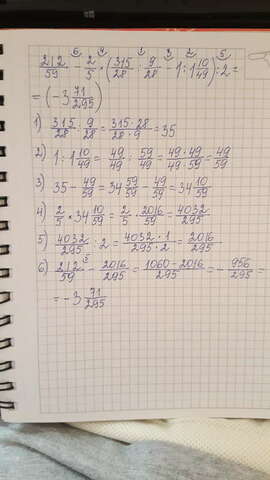 6 4 1 3 2 5
212/59 - 2/5 · (315/28 : 9/28 - 1 : 1 10/49) : 2 =
= (-3 71/295)
1) 315/28 : 9/28 = 315·28/28·9 = 35
2) 1 : 1 10/49 = 49/49 : 59/49 = 49·49/49·59 = 49/59
3) 35 - 49/59 = 34 59/59 - 49/59 = 34 10/59
4) 2/5 · 34 10/59 = 2/5 · 2016/59 = 4032/295
5) 4032/295 : 2 = 4032·1/295·2 = 2016/295
6) 212/59 ⁵ - 2016/295 = 1060-2016/295 = - 956/295 =
= -3 71/295